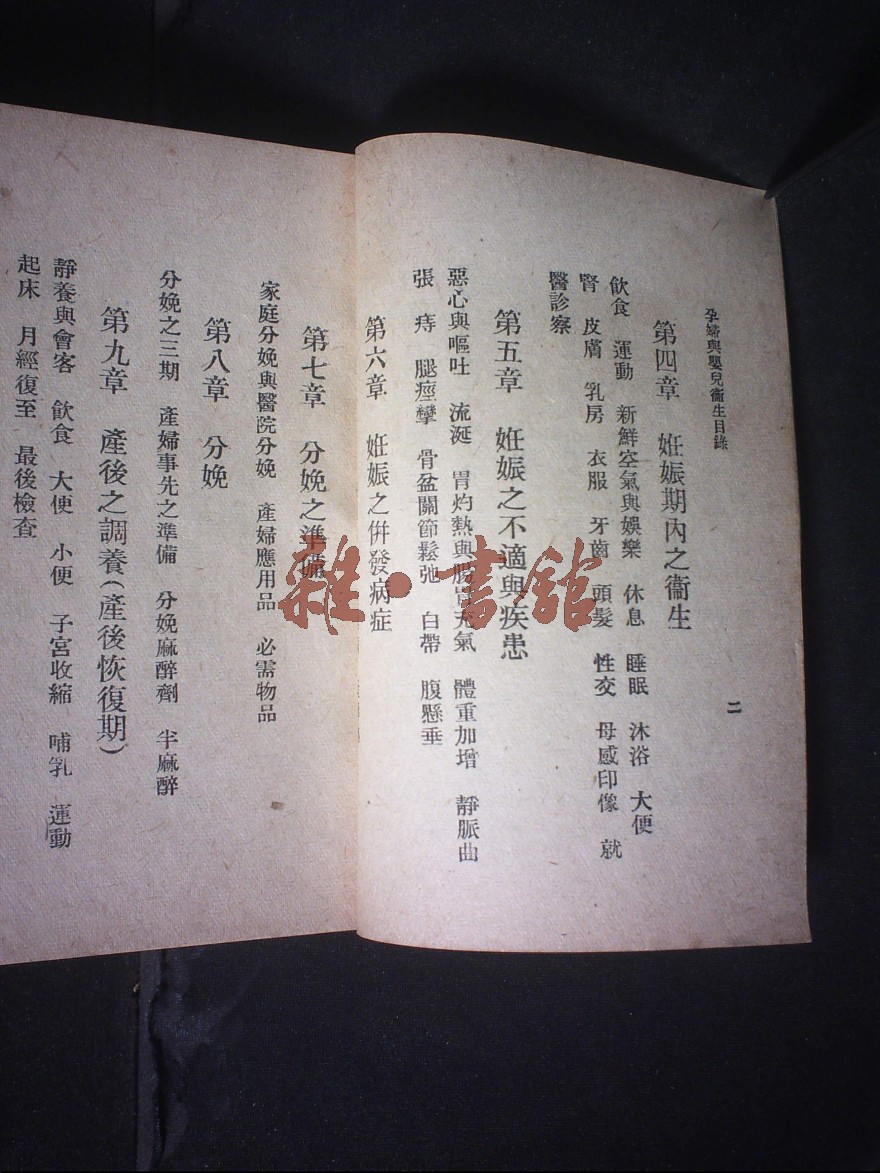 孕婦與嬰兒衞生目錄
二
第四章　妊娠期內之衞生
飲食　運動　新鮮空氣與娛樂　休息　睡眠　沐浴　大便
腎　皮膚　乳房　衣服　牙齒　頭髮　性交　母感印像　就
醫診察
第五章　妊娠之不適與疾患
惡心與嘔吐　流涎　胃灼熱與腸胃充氣　體重加增　靜脈曲
張　痔　腿痙攣　骨盆關節鬆弛　白帶　腹懸垂
第六章　妊娠之併發病症
第七章　分娩之準備
家庭分娩與醫院分娩　產婦應用品　必需物品
第八章　分娩
分娩之三期　產婦事先之準備　分娩麻醉劑　半麻醉
第九章　產後之調養（產後恢復期）
靜養與會客　飲食　大便　小便　子宮收縮　哺乳　運動
起床　月經復至　最後檢查
雜·書館